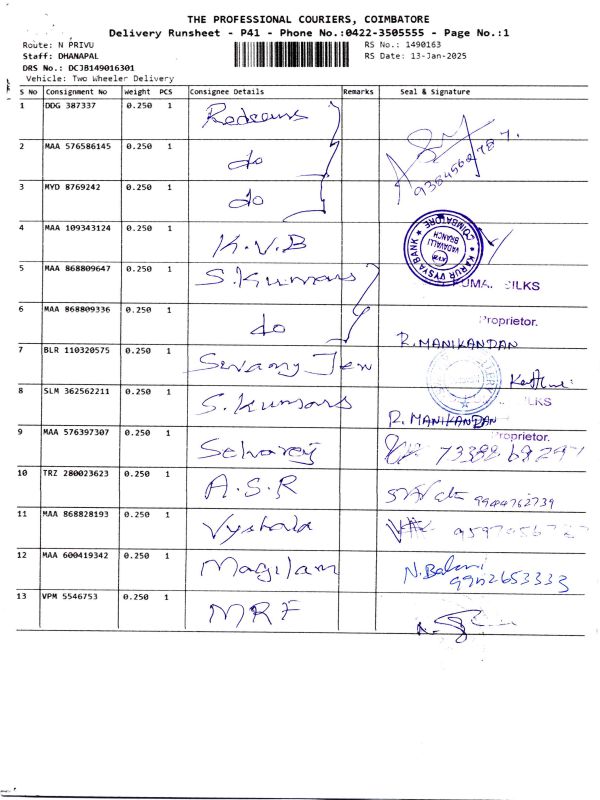 THE PROFESSIONAL COURIERS, COIMBATORE
Delivery Runsheet - P41 - Phone No.:0422-3505555 - Page No.:1
Route: N PRIVU
RS No.: 1490163
Staff: DHANAPAL
RS Date: 13-Jan-2025
DRS No.: DCJB149016301
Vehicle: Two Wheeler Delivery
S No Consignment No Weight PCS Consignee Details Remarks Seal & Signature
1 DDG 387337 0.250 1
2 MAA 576586145 0.250 1 do
3 MYD 8769242 0.250 1 do
4 MAA 109343124 0.250 1 K.V.B
KARUR VYSYA BANK
COIMBATORE
VADAVALLI
BRANCH
5 MAA 868809647 0.250 1 S.Kumars
SILKS
6 MAA 868809336 0.250 1 do
Proprietor.
R. MANIKANDAN
7 BLR 110320575 0.250 1
8 SLM 362562211 0.250 1 S.Kumars
R. MANIKANDAN
Proprietor.
9 MAA 576397307 0.250 1
10 TRZ 280023623 0.250 1 A.S.R
11 MAA 868828193 0.250 1
12 MAA 600419342 0.250 1 Magilam N.Balani
9942653333
13 VPM 5546753 0.250 1 MRF